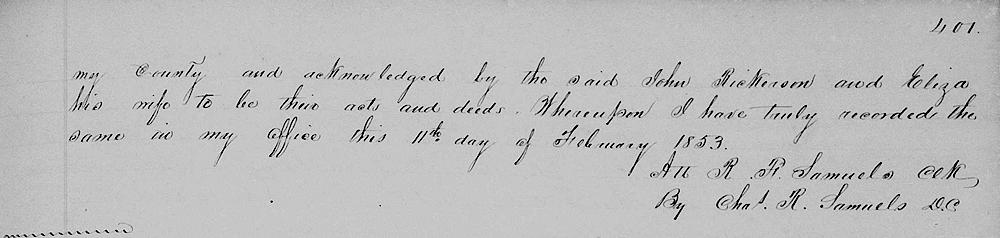 401.
my County and acknowledged by the said John Rickerson and Eliza
his wife to be their acts and deeds. Whereupon I have truly recorded the
same in my office this 11th day of February 1853.
Att R. R. Samuels Clk
By Chas. R. Samuels D.C